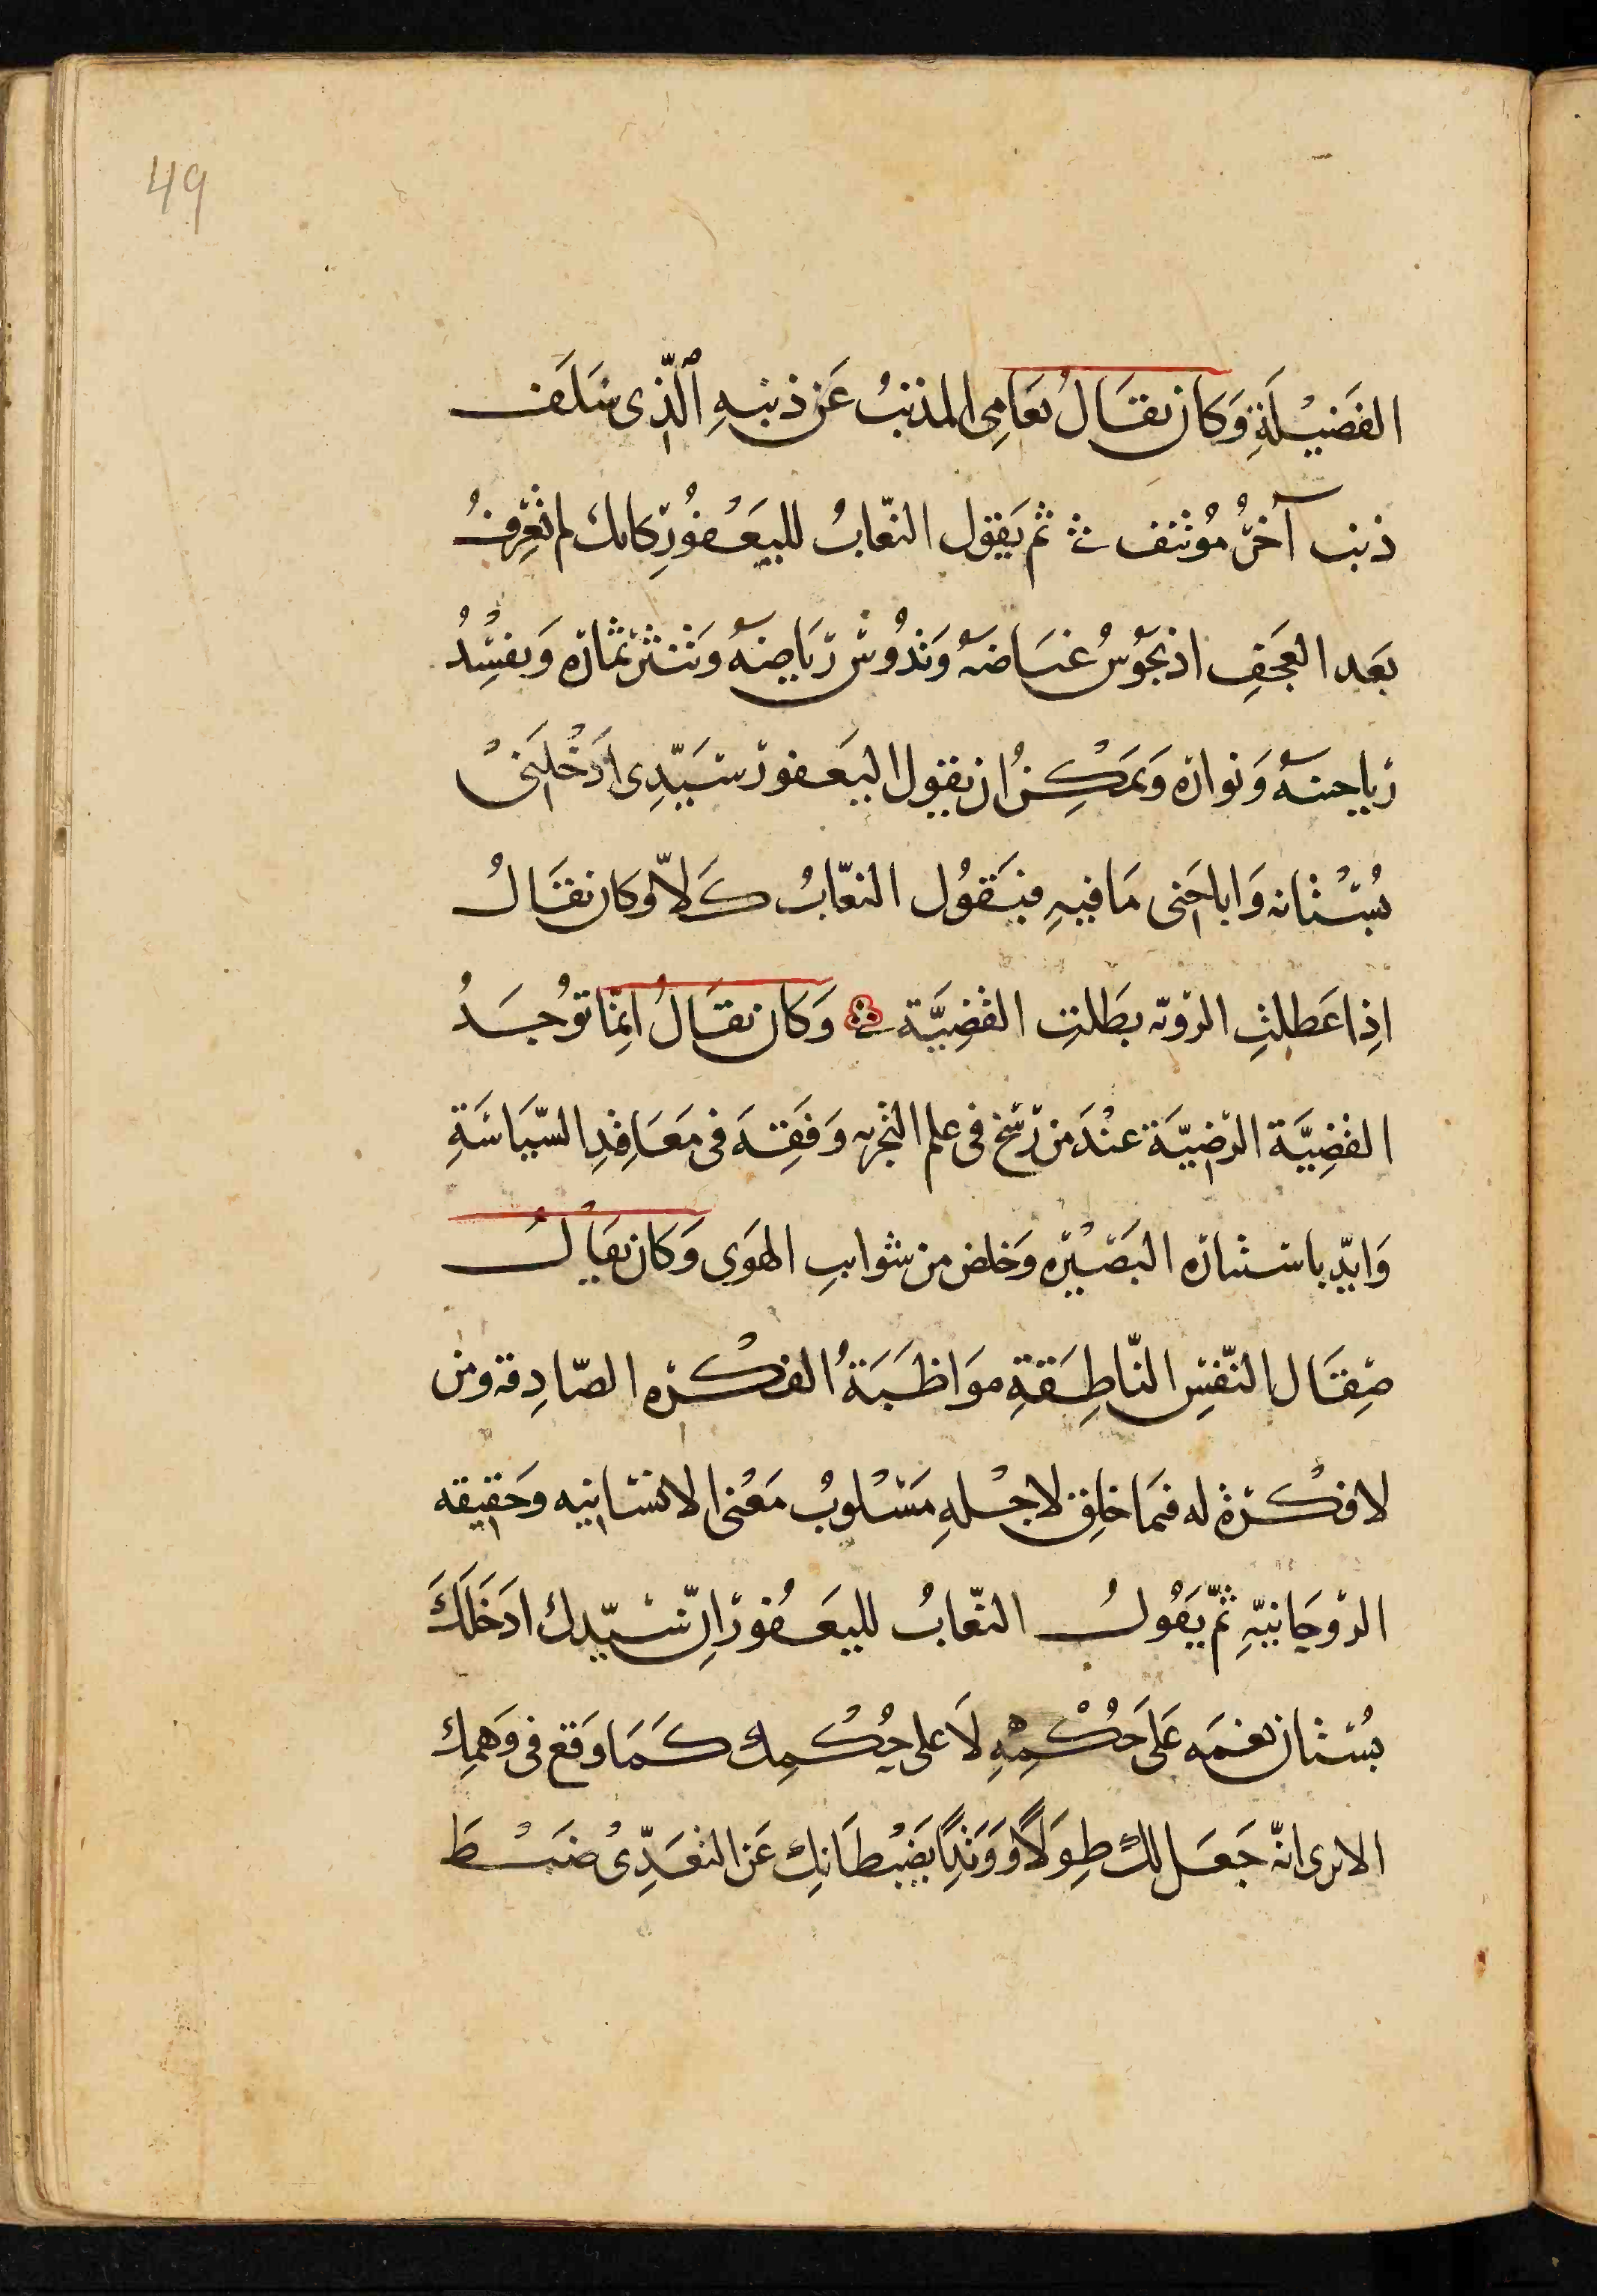 49
الفَضيْلَةِ وَكان يقَالُ تعَامِى المذنبُ عَن ذنبهِ الَّذِى سَلَف
ذنب آخرٌ مُوتنف ثم يَقول النعّابُ لليَعْفُورِ كانك لم تعْرِفُ
بَعد العَجَفِ اذ تجُوسُ غيَاضهُ وَتدُوسُ رَياضهُ وَتنثر ثمارَه وَتفسِدُ
رياحينهُ وَنواره وَيمكِنُ ان يقول اليَعفور سَيِّدِى ادخْلَنىْ
بُسْتانه وَاباحَنى مَا فيهِ فيَقوُل النعّابُ كَلاّ وَكان يقَالُ
اِذا عَطلتِ الروّيه بطَلتِ القضِيَّة وَكان يقَالُ انِمّا توُجَدُ
القضِيَّة الرضيَّة عنْدَ من رَسَخ فى علم التجربه وَفَقِهَ فى مَعَاقِدِ السّيَاسَةِ
وَايّد باستنارَه البَصيْره وَخلص من شوايبِ الهَوَى وَكان يقَالُ
صِقَال النّفسِ النّاطِقَةِ موَاظَبَةُ الفكْره الصّادِقه ومن
لا فكْرة له فيمَا خلِق لاجْلهِ مَسْلوبُ مَعْنى الانسَانيه وحَقيقه
الروّحَانيّهِ ثمّ يَقولُ النعّابُ لليَعفُور اِنّ سَيّدك ادَخَلَكَ
بُسْتان نعَمه عَلىَ حَكْمِهِ لَا على حُكْمِك كَمَا وَقع فى وَهمِك
الا ترى انّه جَعَل لك طِوَلًا وَوَتدًا يَضْبطَانِك عَن التعَدِّىُ ضَبْطَ